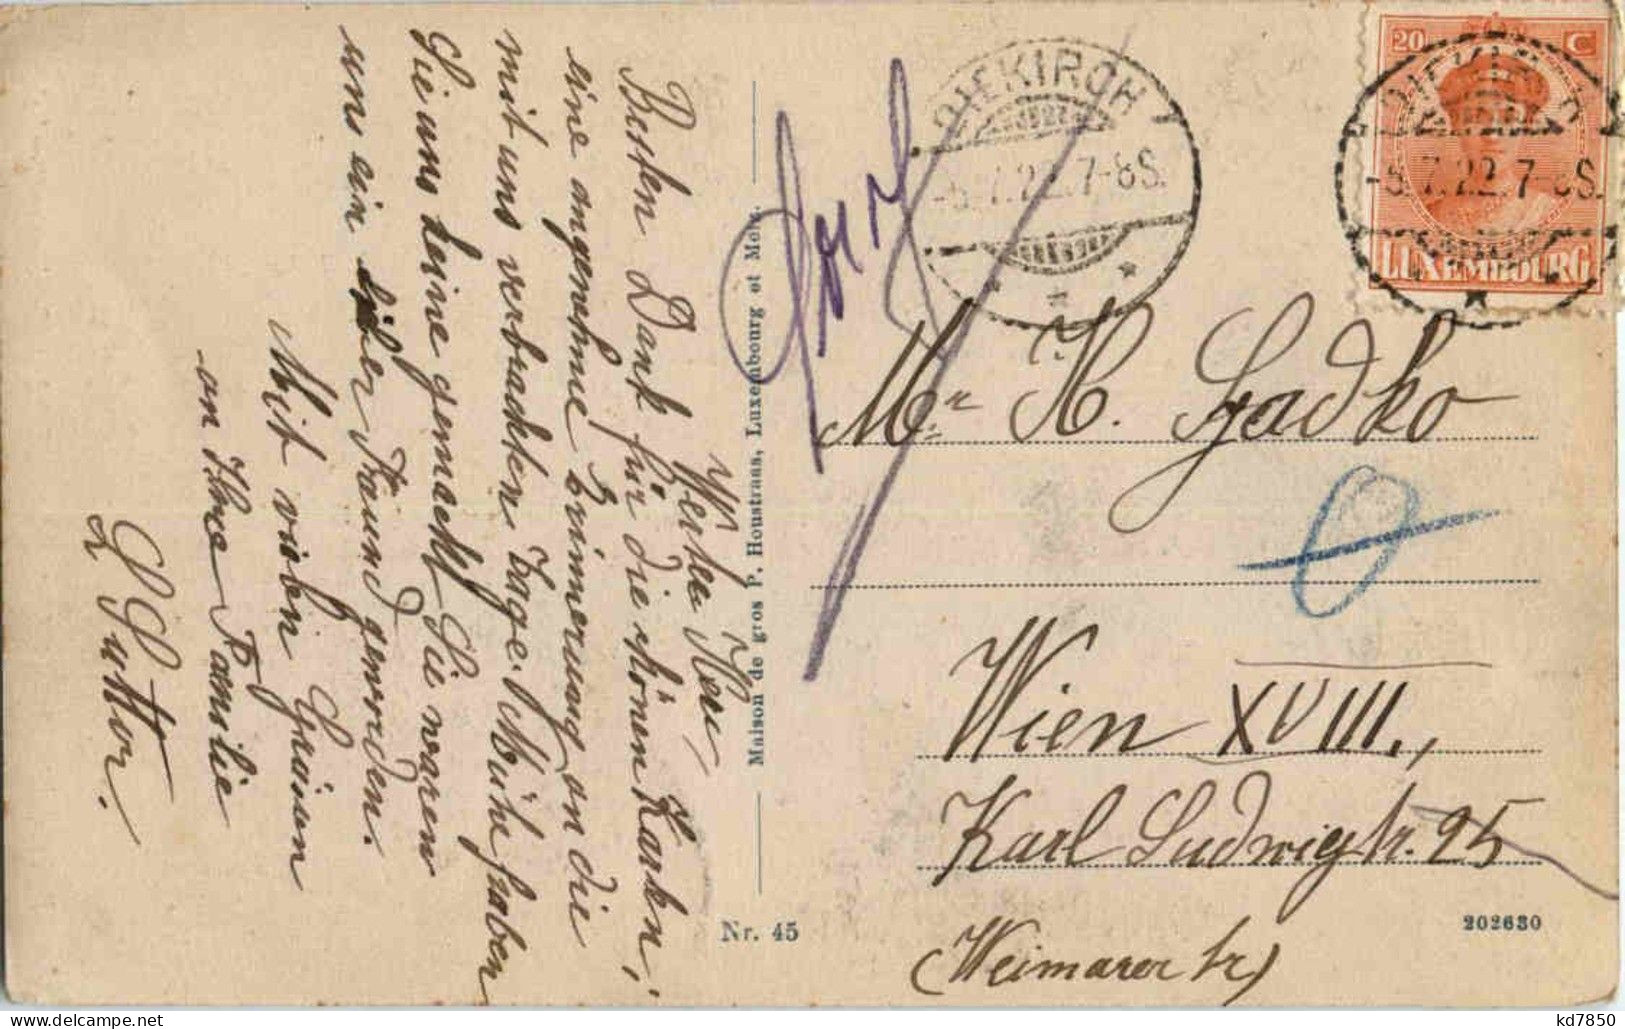 Werter Herr,
Besten Dank für die schönen Karten,
eine angenehme Erinnerung an die
mit uns verbrachten Tage. Mühe haben
Sie uns keine gemacht Sie waren
uns ein lieber Freund geworden.
Mit vielen Grüssen
an Ihre Familie
L Suttor.
Maison de gros P. Houstraas, Luxembourg et Metz.
Nr. 45
DIEKIRCH
-5.7.22.7-8S.
20 C
LUXEMBOURG
DIEKIRCH
-5.7.22.7-8S.
Mr. H. Gadko
Wien XVIII.,
Karl Ludwigstr. 25
(Weimarer str)
202630
kd7850